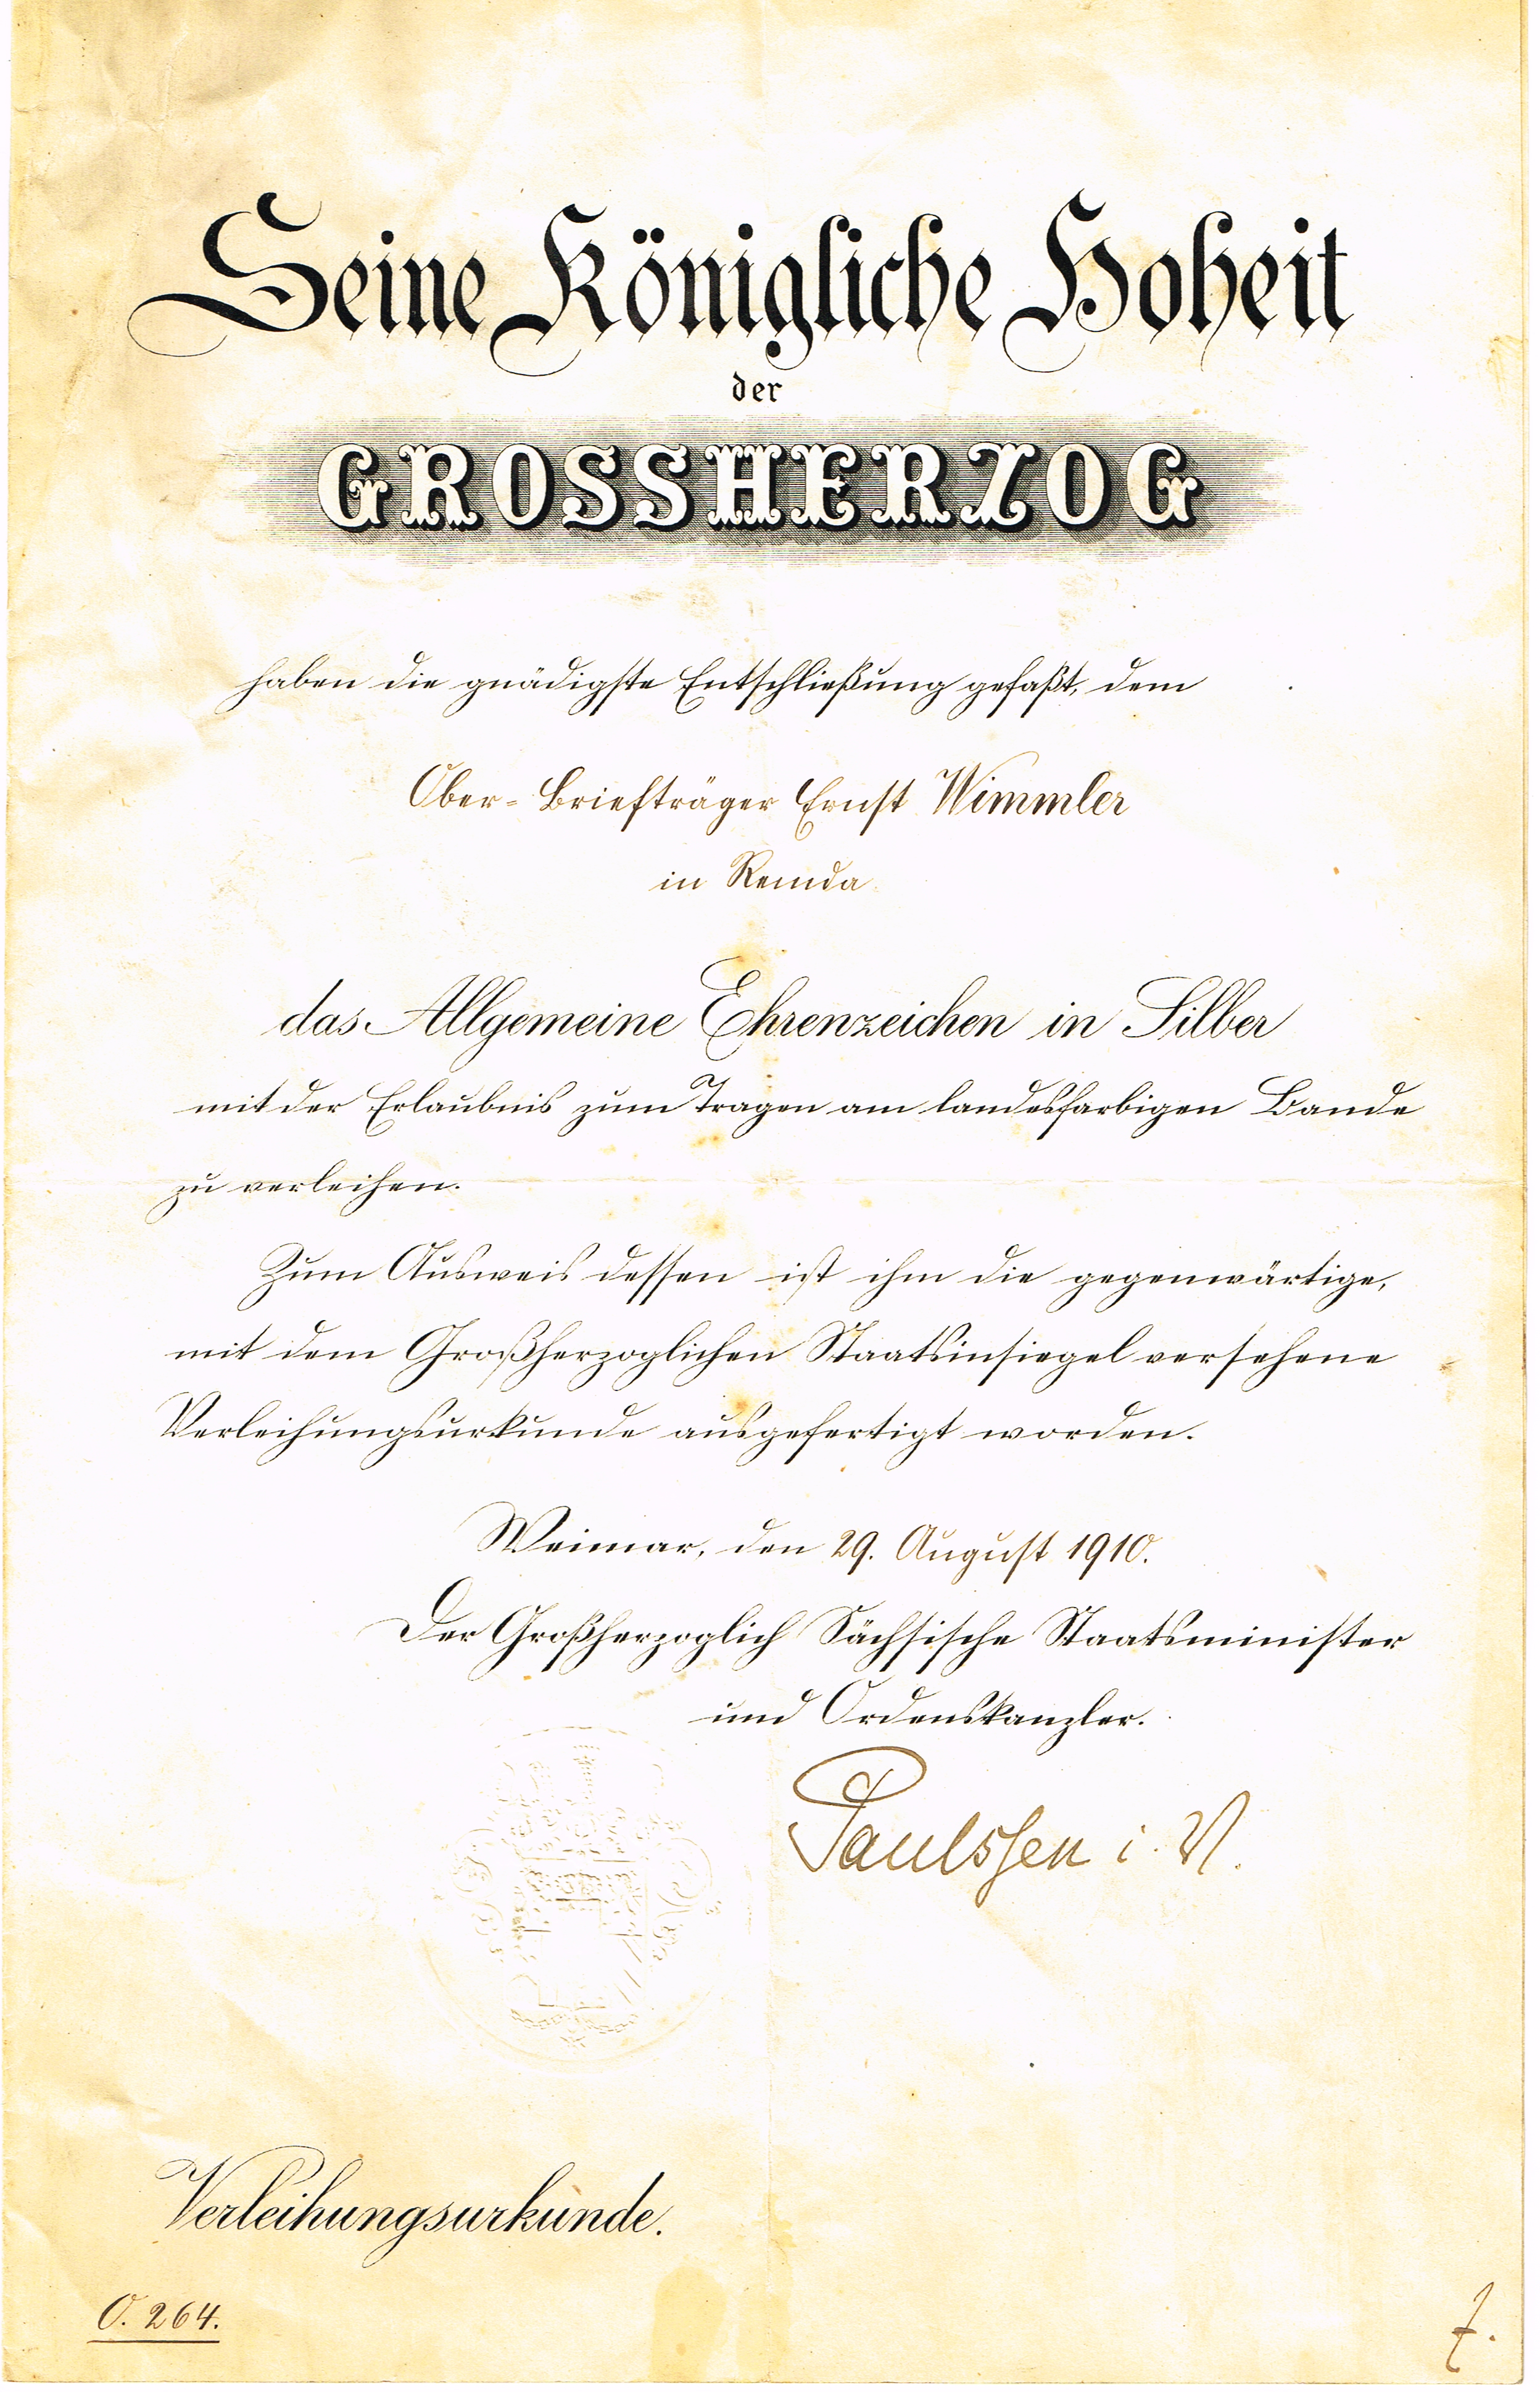 Seine Königliche Hoheit
der
GROSSHERZOG
haben die gnädigste Entschließung gefaßt, dem
Ober-Briefträger Ernst Wimmler
in Remda
das Allgemeine Ehrenzeichen in Silber
mit der Erlaubnis zum Tragen am landesfarbigen Bande
zu verleihen.
Zum Ausweis dessen ist ihm die gegenwärtige,
mit dem Großherzoglichen Staatsinsiegel versehene
Verleihungsurkunde ausgefertigt worden.
Weimar, den 29. August 1910.
Der Großherzoglich Sächsische Staatsminister
und Ordenskanzler.
Paulssen i. V.
Verleihungsurkunde.
O. 264.